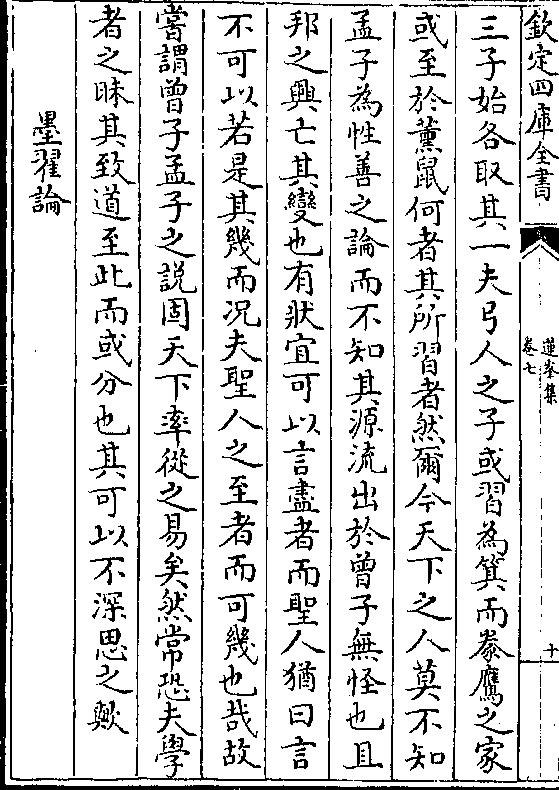 欽定四庫全書
蓮峯集
卷七
十
三子始各取其一夫弓人之子或習為箕而豢鷹之家
或至於薰鼠何者其所習者然爾今天下之人莫不知
孟子為性善之論而不知其源流出於曾子無怪也且
邦之興亡其變也有狀宜可以言盡者而聖人猶曰言
不可以若是其幾而况夫聖人之至者而可幾也哉故
嘗謂曾子孟子之説固天下率從之易矣然常恐夫學
者之昧其致道至此而或分也其可以不深思之歟
墨翟論